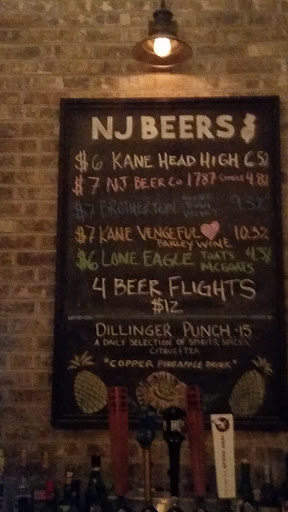 NJ BEERS
$6 KANE HEAD HIGH 6.5%
$7 NJ BEER CO 1787 SINGLE 4.8%
$7 BROTHERTON 9.3%
$7 KANE VENGEFUL 10.3%
BARLEY WINE
$6 LONE EAGLE THAT'S MCGOATS 4.5%
4 BEER FLIGHTS
$12
DILLINGER PUNCH · 15
A DAILY SELECTION OF SPIRITS, SPICES,
CITRUS & TEA
"COPPER PINEAPPLE DRINK"